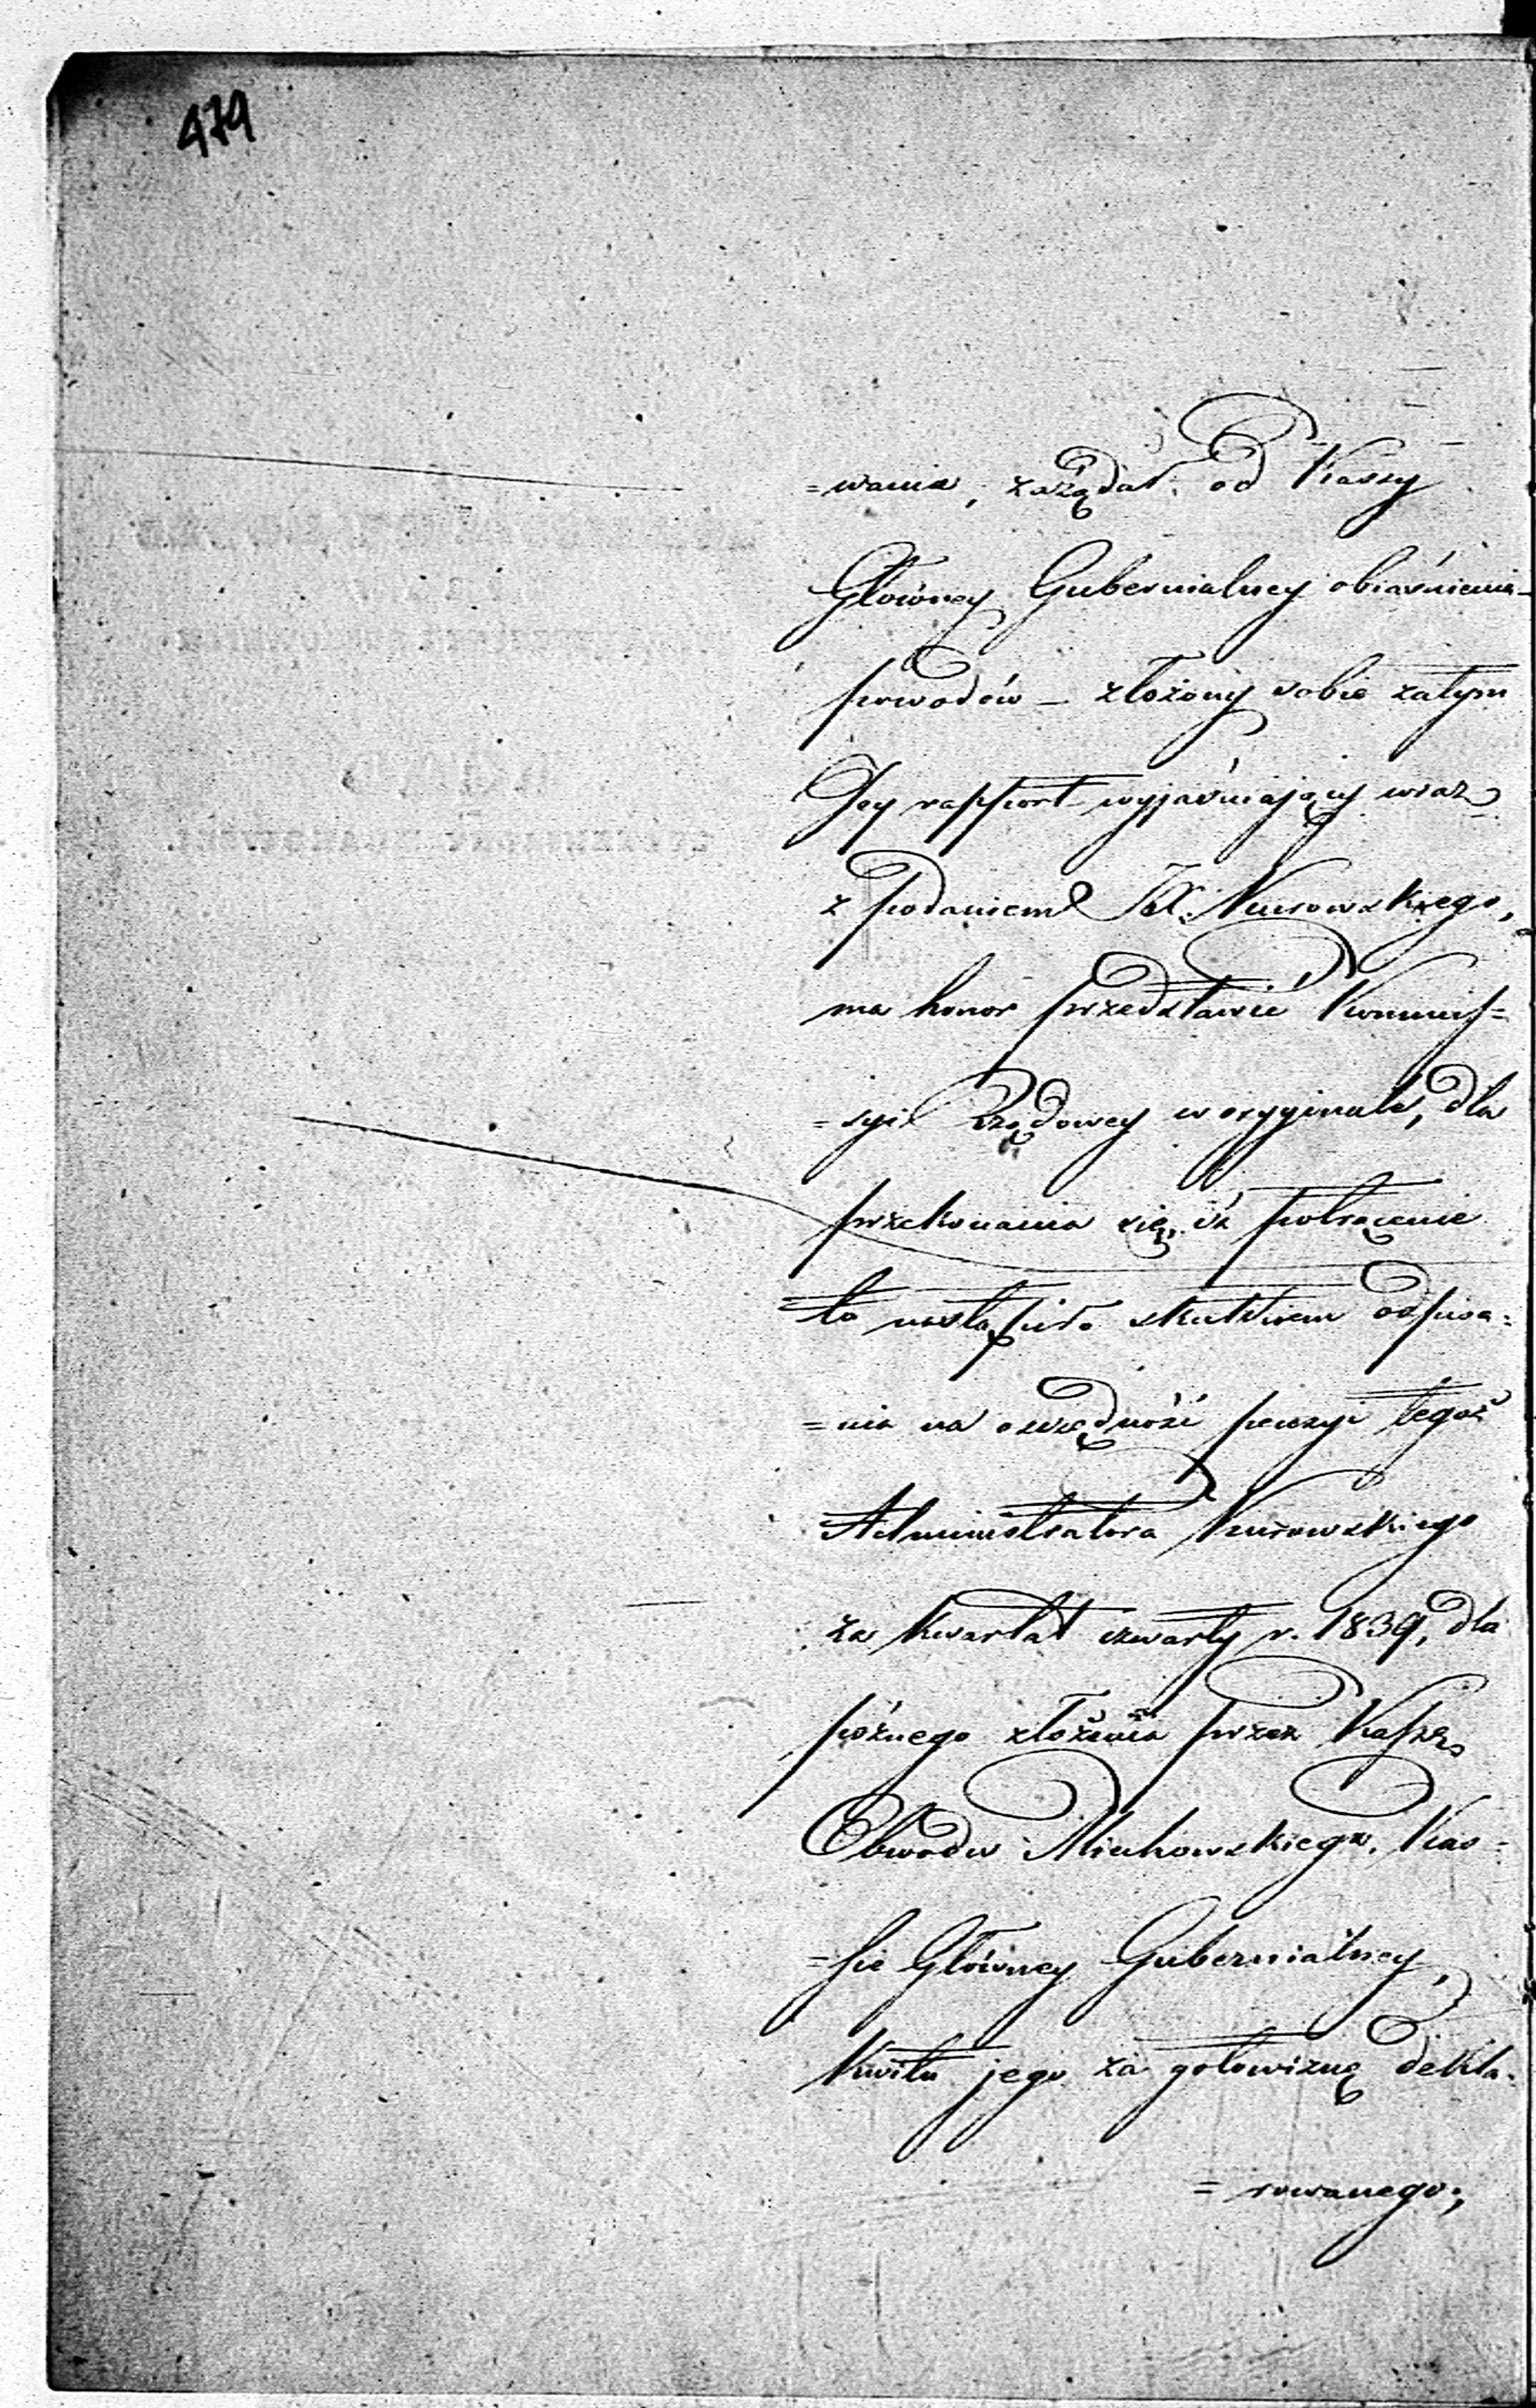 479
=wania, zażądał od Kassy
Główney Gubernialney obiaśnienia
powodów – złożony sobie zatym
Jey rapport wyjaśniający wraz
z podaniem JX. Kurowskiego,
ma honor przedstawić Kommis=
=syi Rządowey w oryginale, dla
przekonania się, iż potrącenie
to nastąpiło skutkiem odpisa=
=nia na oszczędność pensyi tegoż
Administratora Kurowskiego
za kwartał czwarty r. 1839, dla
późnego złożenia przez Kassę
Obwodu Miechowskiego, Kas=
=sie Główney Gubernialney,
kwitu jego za gotowiznę dekla=
=rowanego;